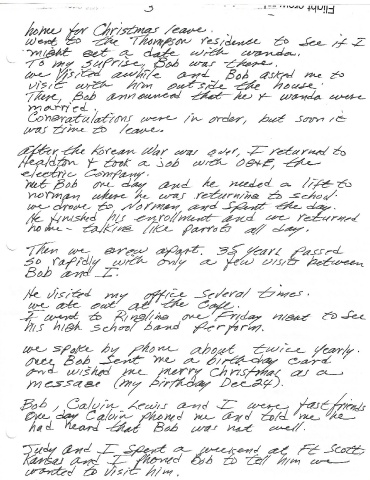 3
home for Christmas leave.
went to the Thompson residence to see if I
might get a date with wanda.
To my suprise, Bob was there.
we visited awhile and Bob asked me to
visit with him outside the house.
There, Bob announced that he & wanda were
married.
Congratulations were in order, but soon it
was time to leave.
After the Korean War was over, I returned to
Healdton & took a job with OG&E, the
electric company.
met Bob one day and he needed a lift to
norman where he was returning to school.
we drove to norman and spent the day.
He finished his enrollment and we returned
home - talking like parrots all day.
Then we grew apart. 35 years passed
so rapidly with only a few visits between
Bob and I.
He visited my office several times.
we ate out at the Cafe.
I went to Ringling one Friday night to see
his high school band perform.
we spoke by phone about twice yearly.
once Bob sent me a birthday card
and wished me merry Christmas as a
message (my birthday Dec 24).
Bob, Calvin Lewis and I were fast friends
One day Calvin phoned me and told me he
had heard that Bob was not well.
Judy and I spent a weekend at Ft Scott,
Kansas and I phoned Bob to tell him we
wanted to visit him.